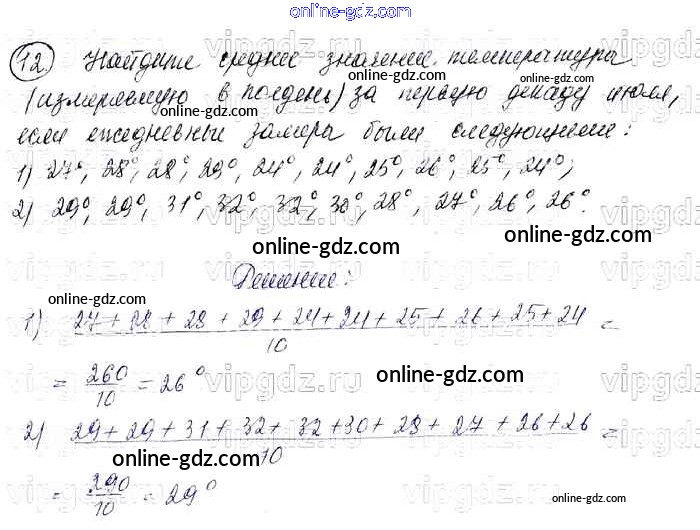 online-gdz.com
12. Найдите среднее значение температуры
online-gdz.com
online-gdz.com
(измеряемую в полдень) за первую декаду июля,
если ежедневные замеры были следующими:
online-gdz.com
1) 27°, 28°, 28°, 29°, 24°, 24°, 25°, 26°, 25°, 24°;
2) 29°, 29°, 31°, 32°, 32°, 30°, 28°, 27°, 26°, 26°.
online-gdz.com
online-gdz.com
Решение:
online-gdz.com
1) 27 + 28 + 28 + 29 + 24 + 24 + 25 + 26 + 25 + 24 =
10
= 260/10 = 26°
vipgdz.ru
online-gdz.com
2) 29 + 29 + 31 + 32 + 32 + 30 + 28 + 27 + 26 + 26 =
10
online-gdz.com
= 290/10 = 29°
online-gdz.com